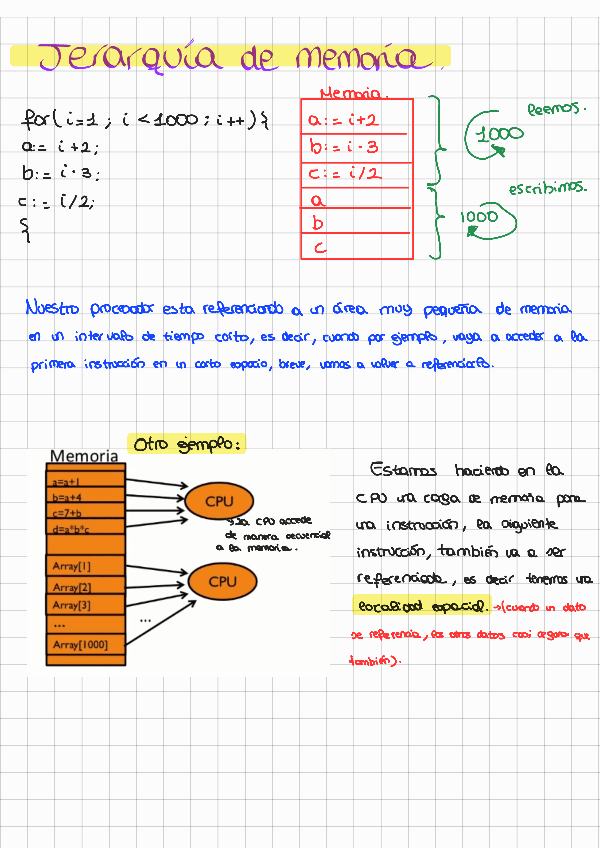 Jerarquía de memoria.
for(i=1; i<1000; i++){
a:= i+2;
b:= i·3;
c:= i/2;
{
Memoria.
a:= i+2
b:= i·3
c:= i/2
a
b
c
leemos.
1000
escribimos.
1000
Nuestro procesador esta referenciando a un área muy pequeña de memoria
en un intervalo de tiempo corto, es decir, cuando por ejemplo, vaya a acceder a la
primera instrucción en un corto espacio, breve, vamos a volver a referenciarlo.
Otro ejemplo:
Memoria
a=a+1
b=a+4
c=7+b
d=a*b*c
Array[1]
Array[2]
Array[3]
...
Array[1000]
CPU
La CPU accede
de manera secuencial
a la memoria.
CPU
...
Estamos haciendo en la
CPU una carga de memoria para
una instrucción, la siguiente
instrucción, también va a ser
referenciada, es decir tenemos una
localidad espacial. →(cuando un dato
se referencia, los otros datos casi seguro que
también).